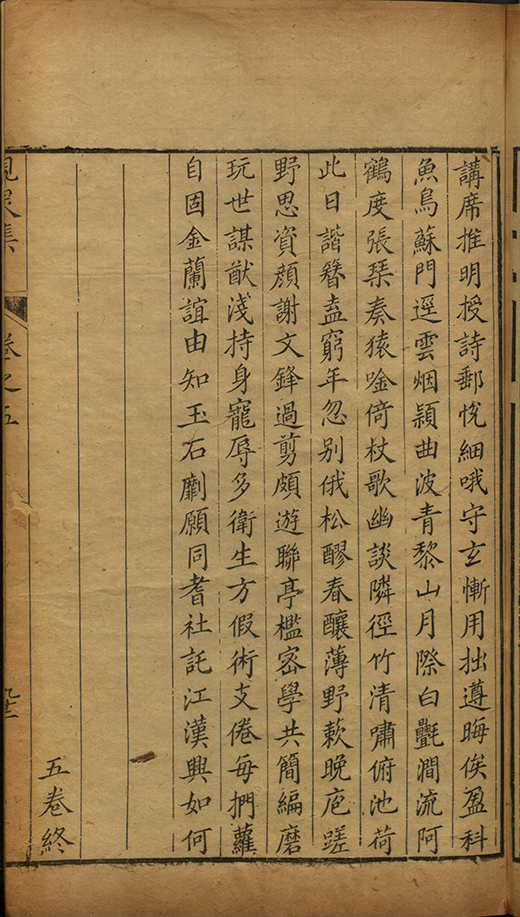 講席推明授詩郵悅細哦守玄慚用拙遵晦俟盈科
魚鳥蘇門逕雲烟潁曲波青黎山月際白㲲澗流阿
鶴度張琹奏猿唫倚杖歌幽談隣徑竹清嘯俯池荷
此日諧簪盍窮年忽别俄松醪春釀薄野蔌晚庖蹉
野思資顏謝文鋒過剪頗遊聯亭檻宻學共簡編磨
玩世謀猷淺持身寵辱多衛生方假術支倦每捫蘿
自固金蘭誼由知玉石劘願同耆社託江漢興如何
五卷終
卷之五